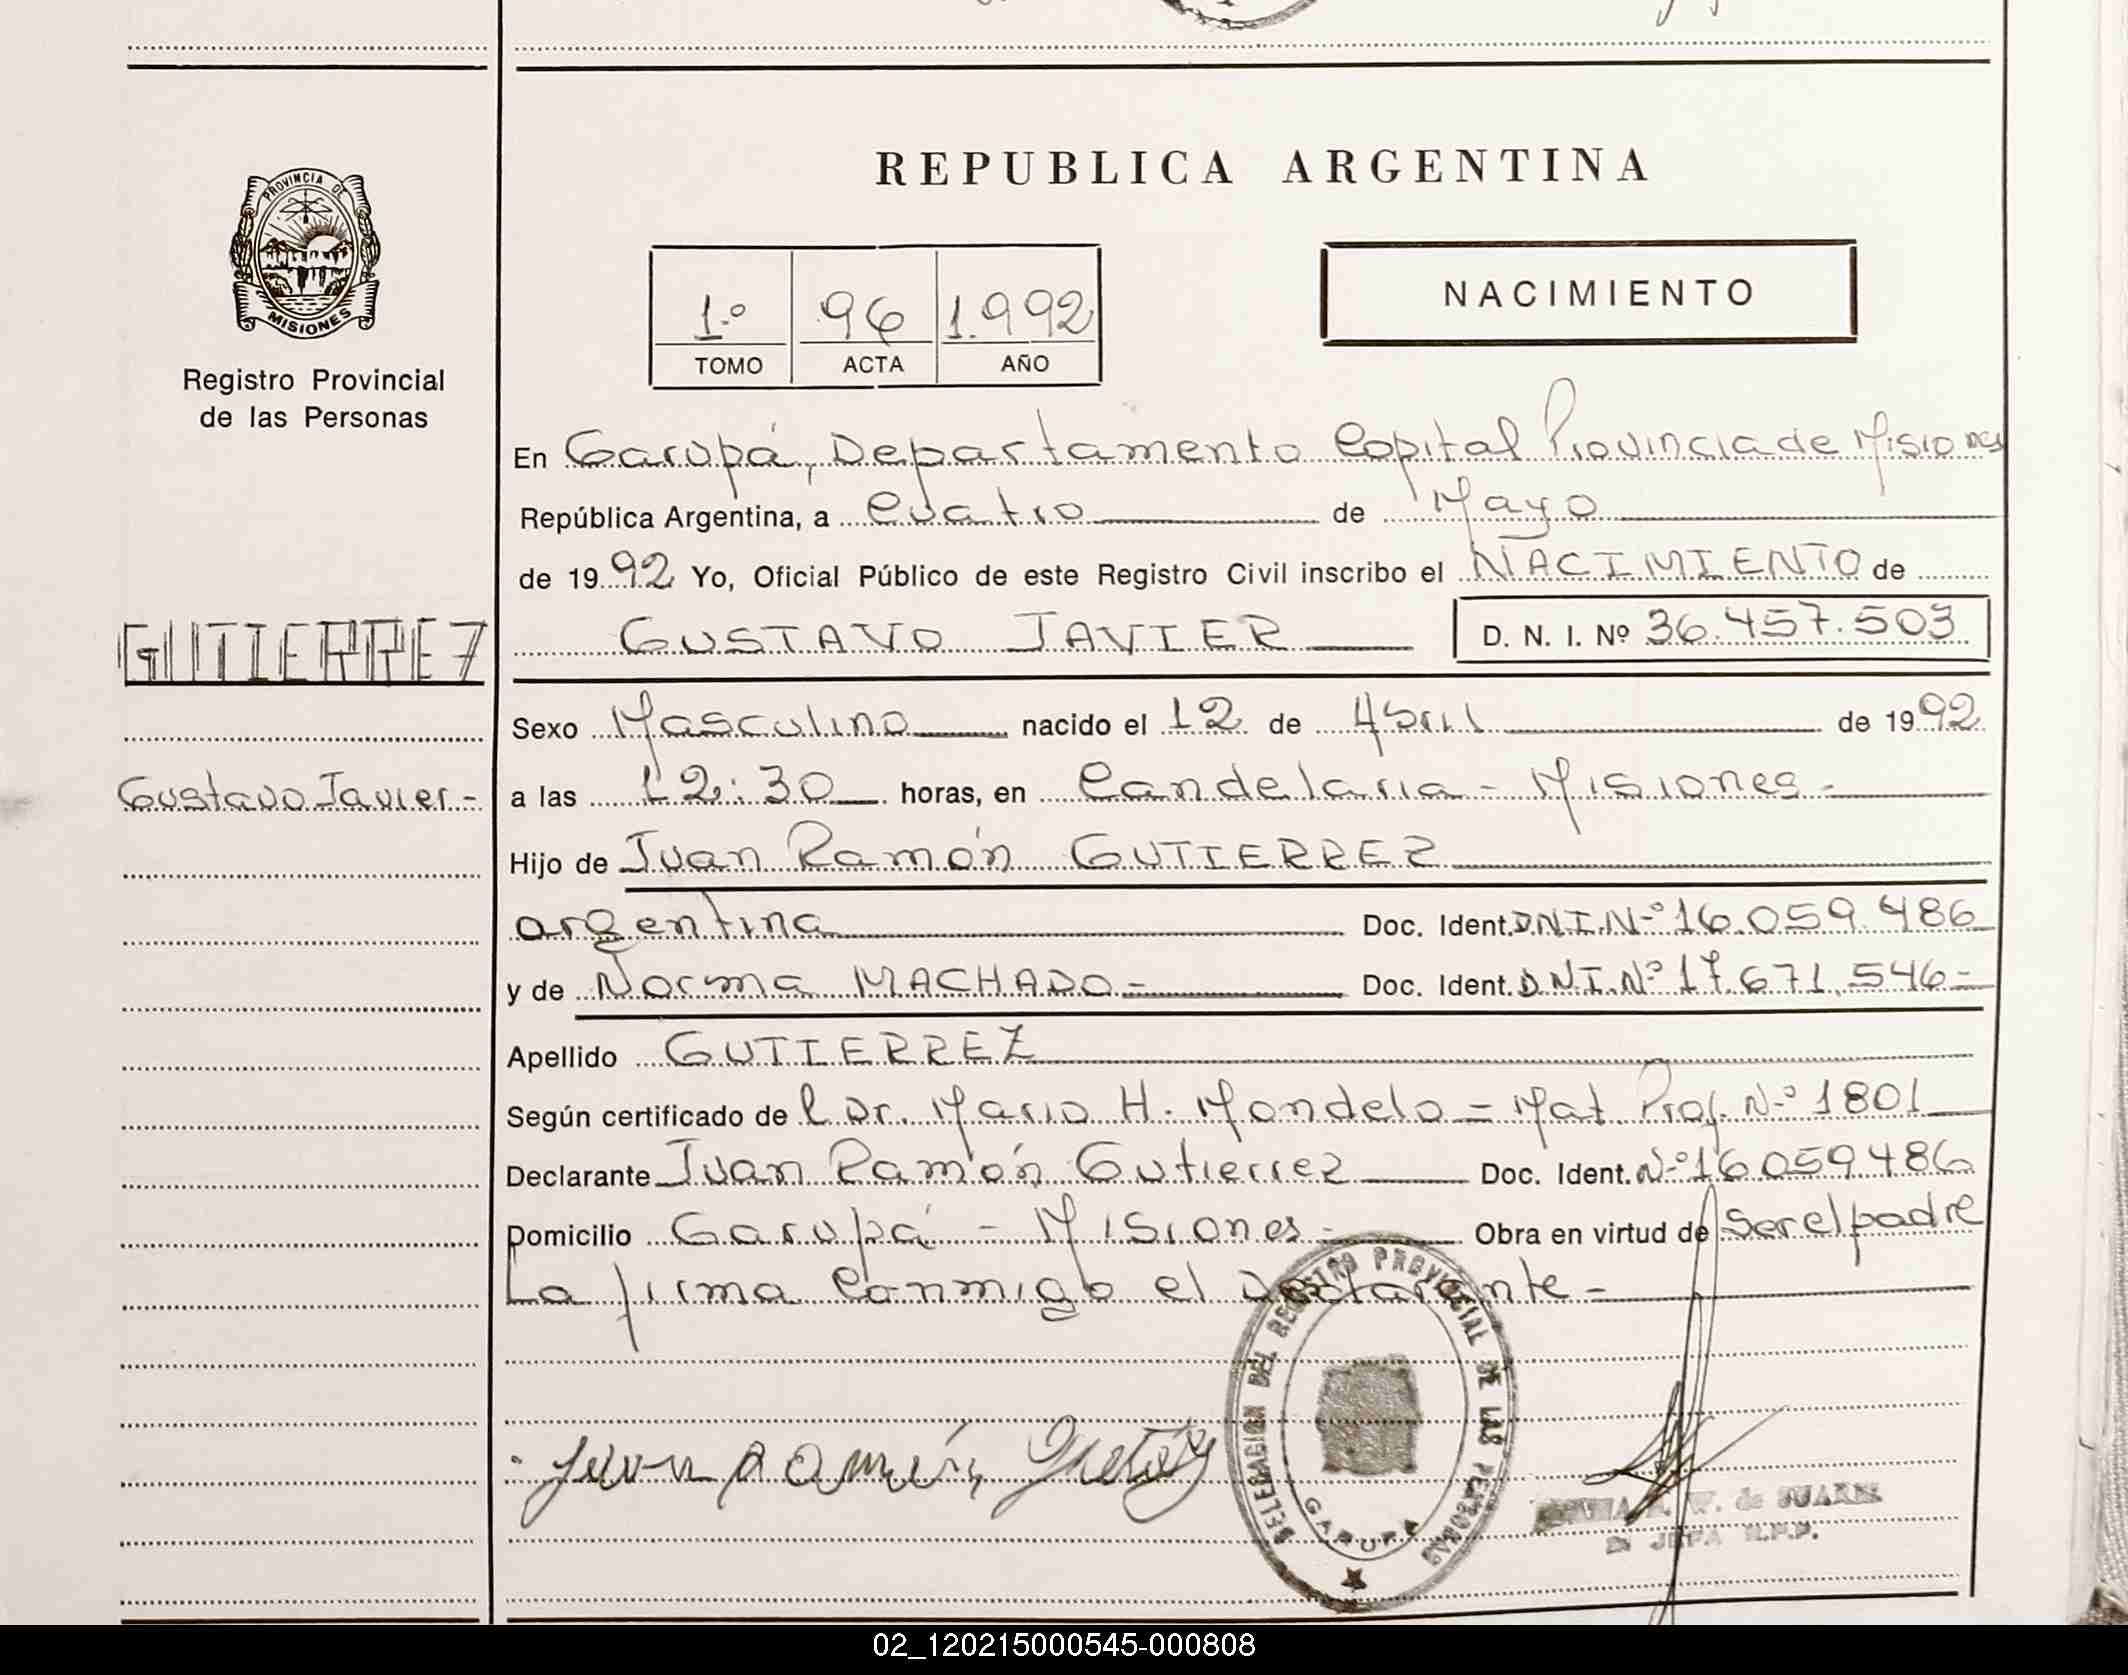 REPUBLICA ARGENTINA
PROVINCIA DE
MISIONES
Registro Provincial
de las Personas
1.º 96 1.992
TOMO ACTA AÑO
NACIMIENTO
En Garupá, Departamento Capital Provincia de Misiones
República Argentina, a Cuatro de Mayo
de 1992 Yo, Oficial Público de este Registro Civil inscribo el NACIMIENTO de
GUSTAVO JAVIER D. N. I. Nº 36.457.503
GUTIERREZ
Gustavo Javier -
Sexo Masculino nacido el 12 de Abril de 1992
a las 12:30 horas, en Candelaria - Misiones -
Hijo de Juan Ramón GUTIERREZ
argentina Doc. Ident. DNI. Nº 16.059.486
y de Norma MACHADO - Doc. Ident. DNI. Nº 17.671.546 =
Apellido GUTIERREZ
Según certificado de Dr. Mario H. Mondelo = Mat. Prof. Nº 1801
Declarante Juan Ramón Gutierrez Doc. Ident. Nº 16.059486
Domicilio Garupá - Misiones - Obra en virtud de Ser el padre
La firma Conmigo el Declarante -
Juan Ramón
DELEGACION DEL REGISTRO PROVINCIAL DE LAS PERSONAS
GARUPA
W. de SUAREZ
JEFA R.P.P.
02_120215000545-000808